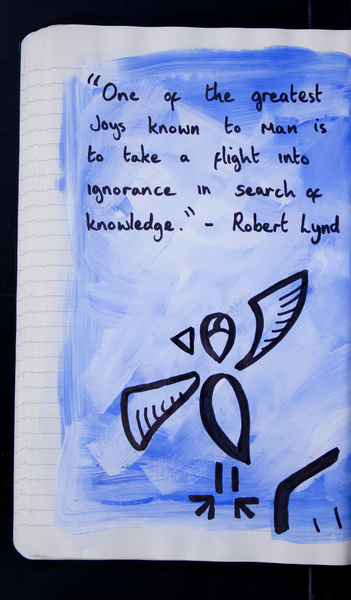 "One of the greatest
Joys known to Man is
to take a flight into
ignorance in search of
knowledge." - Robert Lynd